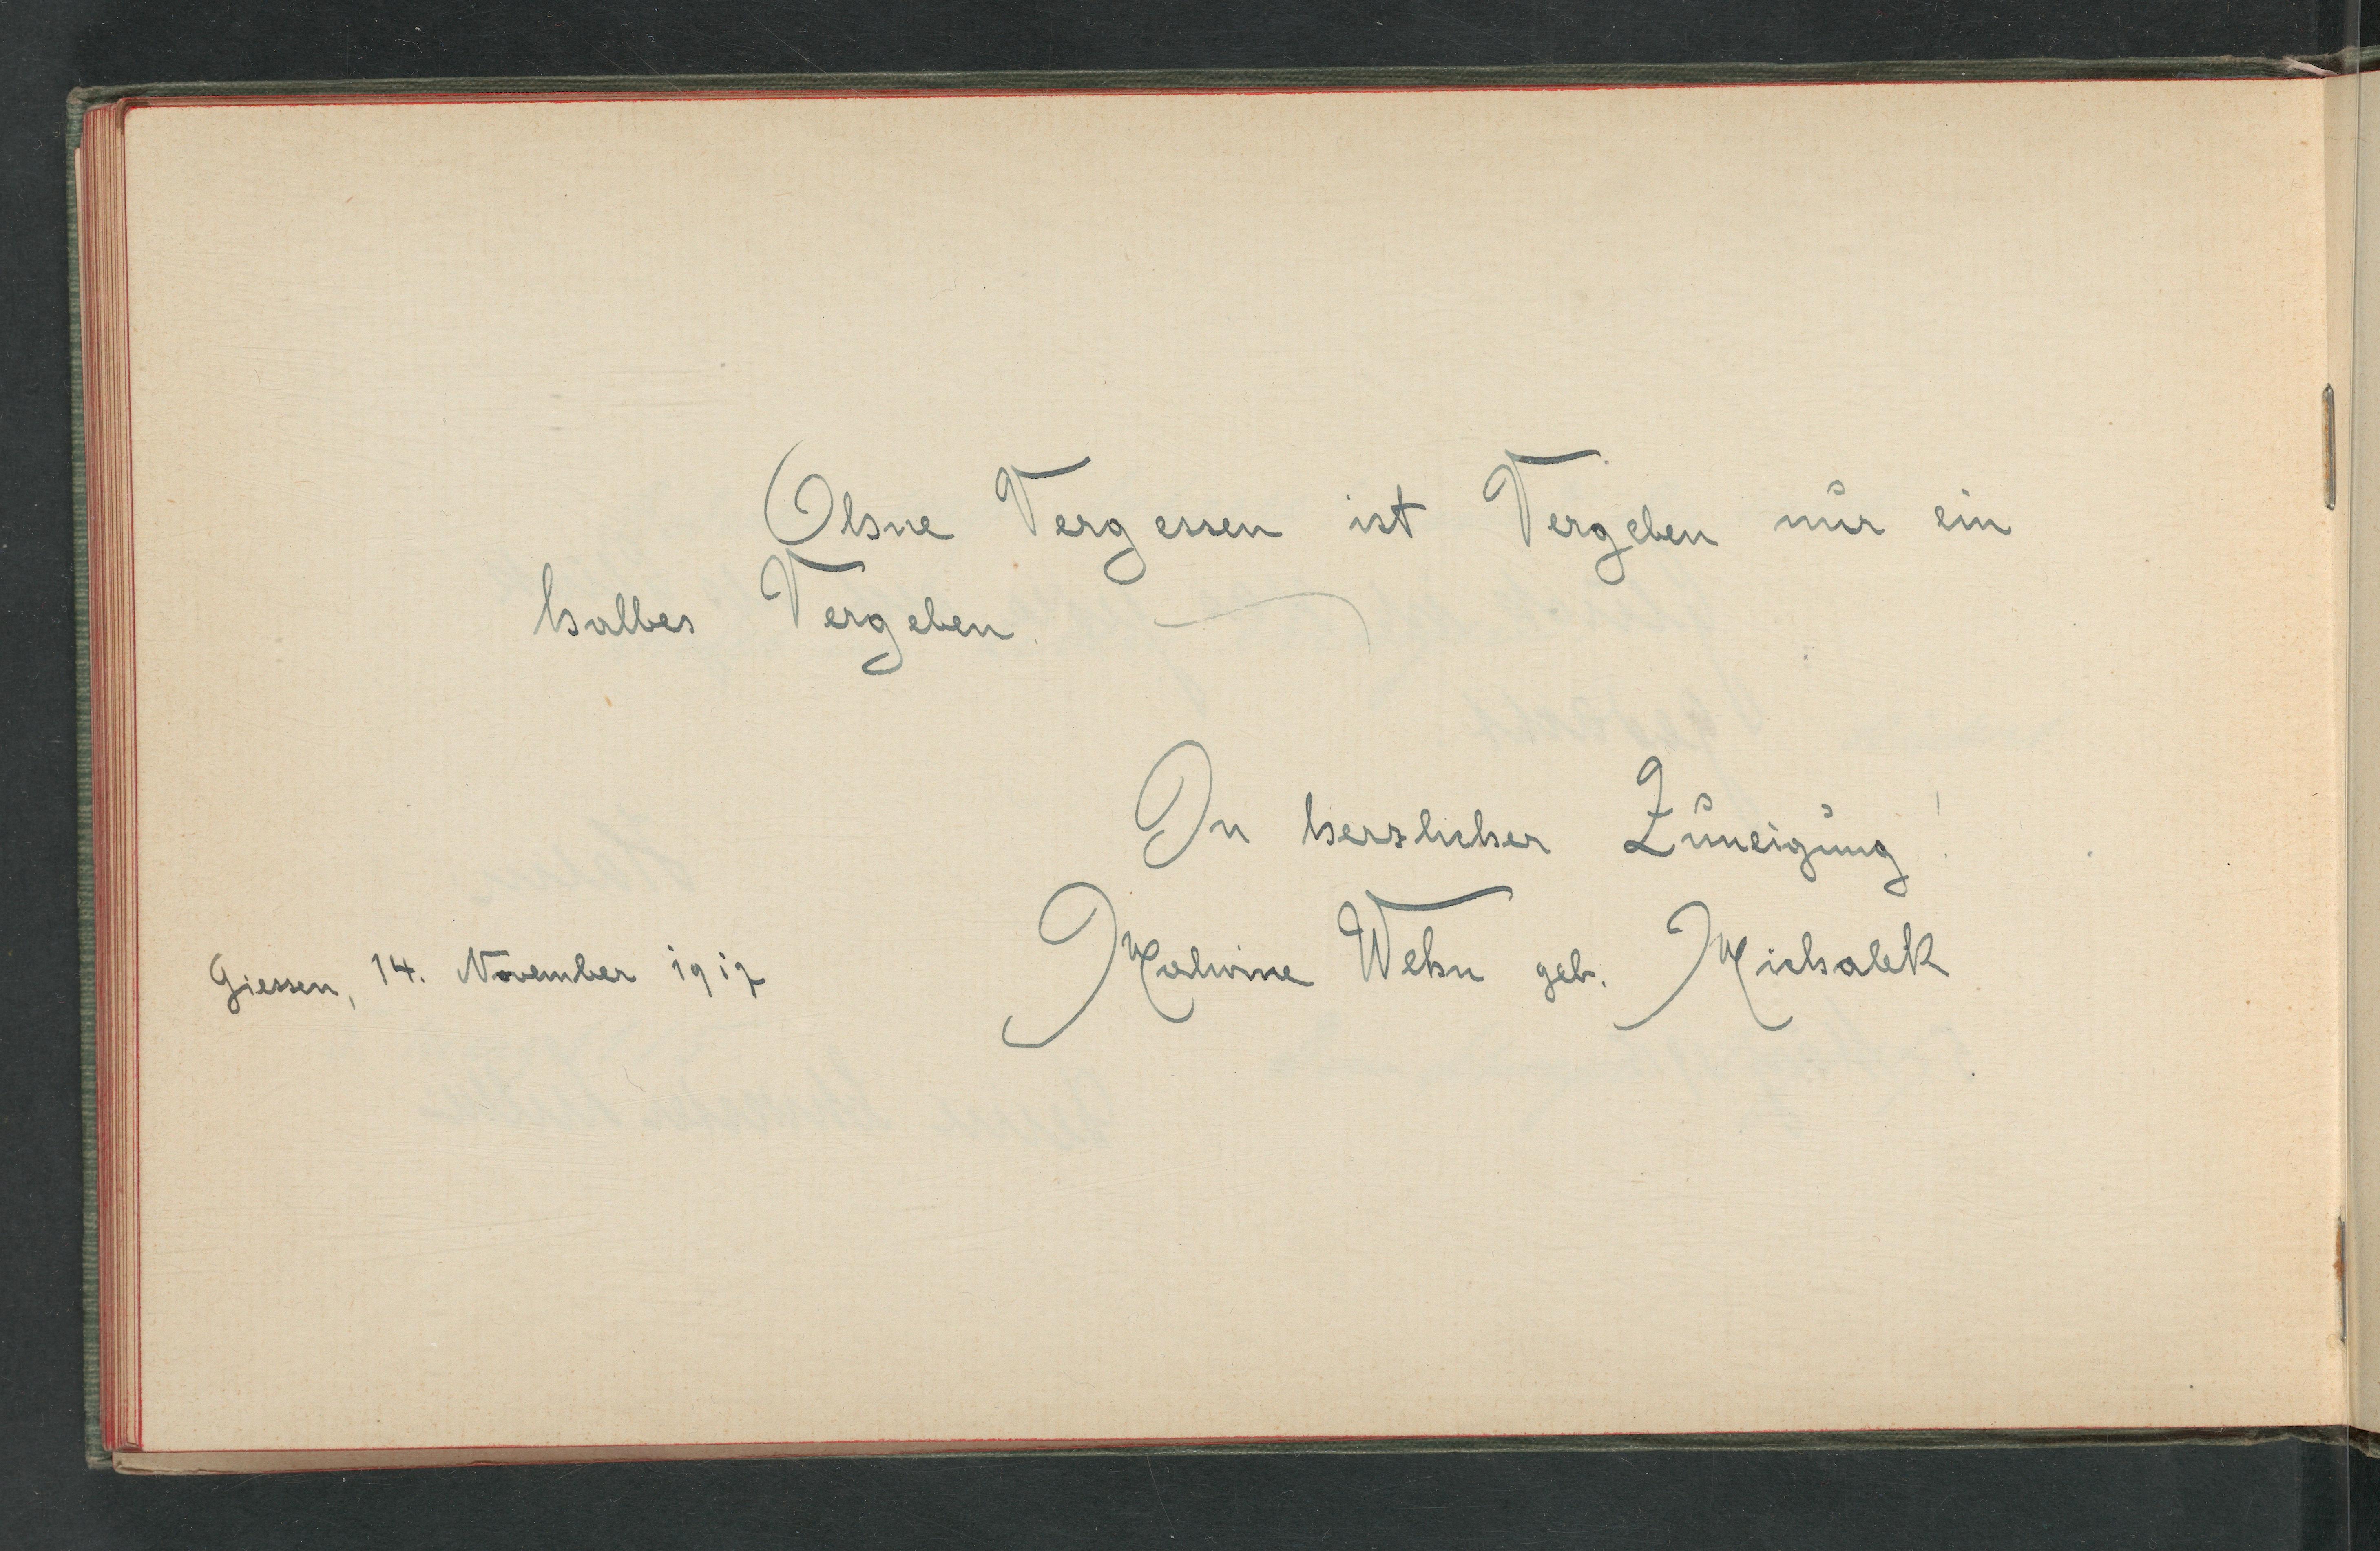 Ohne Vergessen ist Vergeben nur ein
halbes Vergeben.
In herzlicher Zuneigung!
Malwine Wehn geb. Michalek
Giessen, 14. November 1917